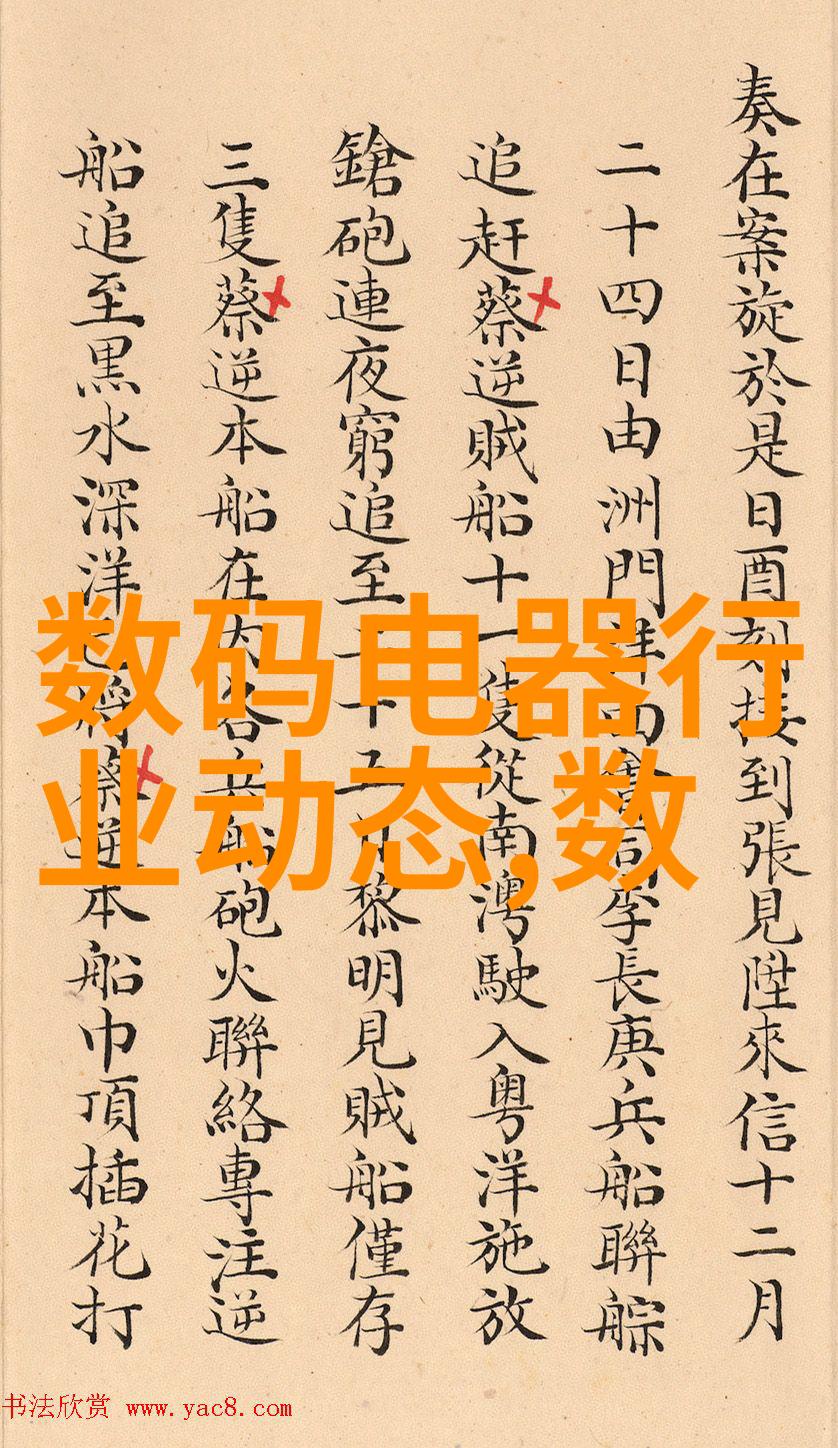 奏在案旋於是日酉刻接到張見陞來信十二月
二十四日由洲門洋面會同李長庚兵船聯䑸
追赶蔡逆賊船十一隻從南澚駛入粤洋施放
鎗砲連夜窮追至二十五日黎明見賊船僅存
三隻蔡逆本船在內各兵船砲火聯絡專注逆
船追至黒水深洋已將蔡逆本船巾頂插花打
数码电器行
业动态,数
书法欣赏 www.yac8.com